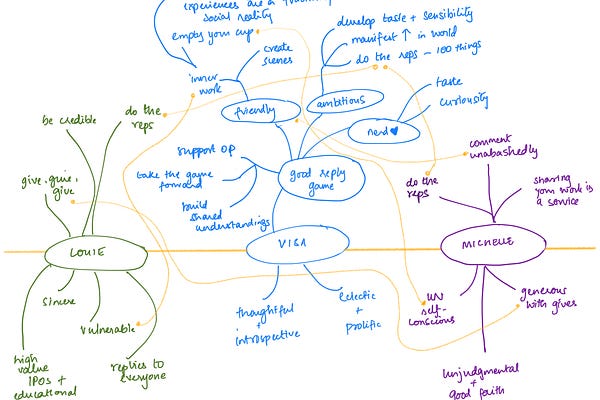 experiences are a
social reality
empty your cup
create
scenes
inner
work
friendly
develop taste + sensibility
manifest ↑ in world
do the reps - 100 things
ambitious
taste
curiosity
nerd ♥
support op
take the game
forward
build
shared
understandings
good reply
game
VISA
thoughtful
+
introspective
eclectic
+
prolific
be credible
do the
reps
give, give,
give
LOUIE
sincere
vulnerable
high
value
IPOs +
educational
replies to
everyone
comment
unabashedly
do the
reps
sharing
your work is
a service
MICHELLE
UN
self-
conscious
generous
with gives
unjudgmental
+
good faith